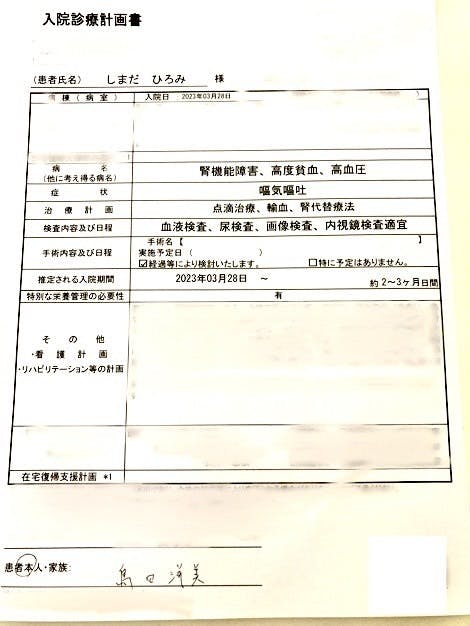 入院診療計画書
(患者氏名) しまだ ひろみ 様
病棟(病室) 入院日 2023年03月28日
病名
(他に考え得る病名)
腎機能障害、高度貧血、高血圧
症状 嘔気嘔吐
治療計画 点滴治療、輸血、腎代替療法
検査内容及び日程 血液検査、尿検査、画像検査、内視鏡検査適宜
手術内容及び日程
手術名【 】
実施予定日 ( )
☑経過等により検討いたします。 □特に予定はありません。
推定される入院期間 2023年03月28日 ~ 約 2~3ヶ月日間
特別な栄養管理の必要性 有
その他
・看護計画
・リハビリテーション等の計画
在宅復帰支援計画 *1
患者本人・家族: 島田洋美